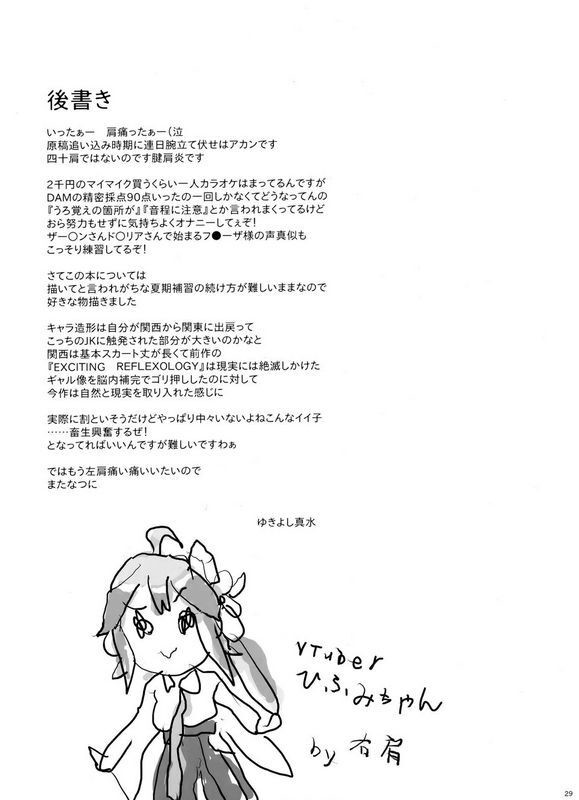 後書き
いったぁー　肩痛ったぁー(泣
原稿追い込み時期に連日腕立て伏せはアカンです
四十肩ではないのです腱肩炎です
2千円のマイマイク買うくらい一人カラオケはまってるんですが
DAMの精密採点90点いったの一回しかなくてどうなってんの
『うろ覚えの箇所が』『音程に注意』とか言われまくってるけど
おら努力もせずに気持ちよくオナニーしてぇぞ!
ザー〇ンさんド〇リアさんで始まるフ●ーザ様の声真似も
こっそり練習してるぞ!
さてこの本については
描いてと言われがちな夏期補習の続け方が難しいままなので
好きな物描きました
キャラ造形は自分が関西から関東に出戻って
こっちのJKに触発された部分が大きいのかなと
関西は基本スカート丈が長くて前作の
『EXCITING　REFLEXOLOGY』は現実には絶滅しかけた
ギャル像を脳内補完でゴリ押ししたのに対して
今作は自然と現実を取り入れた感じに
実際に割といそうだけどやっぱり中々いないよねこんなイイ子
……畜生興奮するぜ!
となってればいいんですが難しいですわぁ
ではもう左肩痛い痛いいたいので
またなつに
ゆきよし真水
VTuber
ひふみちゃん
by 右肩
29